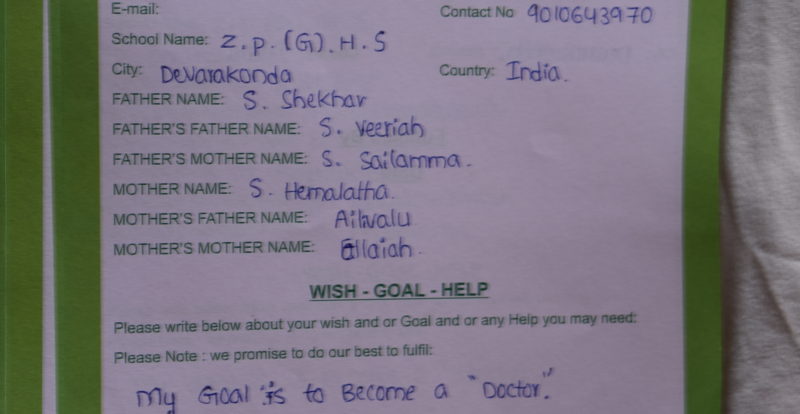 E-mail: Contact No 9010643970
School Name: Z.P.(G).H.S
City: Devarakonda Country: India.
FATHER NAME: S. Shekhar
FATHER'S FATHER NAME: S. Veeriah
FATHER'S MOTHER NAME: S. Sailamma.
MOTHER NAME: S. Hemalatha.
MOTHER'S FATHER NAME:
MOTHER'S MOTHER NAME: Ellaiah.
WISH - GOAL - HELP
Please write below about your wish and or Goal and or any Help you may need:
Please Note : we promise to do our best to fulfil:
My Goal is to Become a "Doctor".